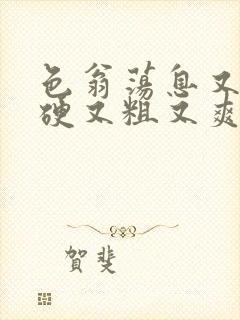 色翁蕩息又
硬又粗又爽
賀斐